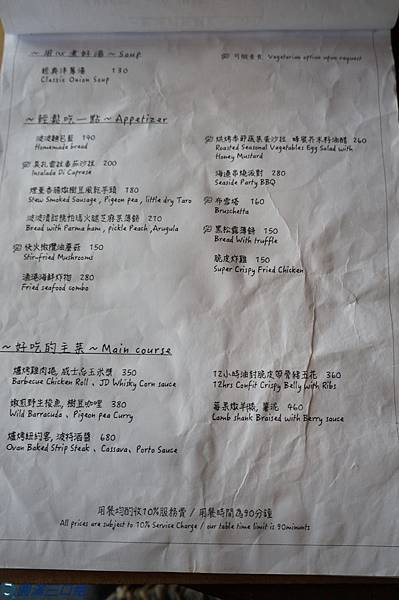 ～用心煮好湯～Soup
可做素食 Vegetarian option upon request
經典洋蔥湯 130
Classic Onion Soup
～輕鬆吃一點～Appetizer
波波麵包籃 190
Homemade bread
莫札雷拉番茄沙拉 200
Insalada Di Caprese
煙燻香腸燉樹豆風乾芋頭 180
Stew Smoked Sausage , Pigeon pea , little dry Taro
波波漬甜桃帕瑪火腿芝麻葉薄餅 210
Bread with Parma ham , pickle Peach ,Arugula
快火橄欖油蘑菇 150
Stir-fried Mushrooms
漁港海鮮炸物 280
Fried seafood combo
烘烤季節蔬菜蛋沙拉 蜂蜜芥末籽油醋 260
Roasted Seasonal Vegetables Egg Salad with
Honey Mustard
海邊串燒派對 280
Seaside Party BBQ
布雪塔 160
Bruschetta
黑松露薄餅 150
Bread With truffle
脆皮炸雞 150
Super Crispy Fried Chicken
～好吃的主菜～Main course
爐烤雞肉捲, 威士忌玉米漿 350
Barbecue Chicken Roll 、JD Whisky Corn sauce
嫩煎野生梭魚, 樹豆咖哩 380
Wild Barracuda 、Pigeon pea Curry
爐烤紐約客, 波特酒醬 680
Oven Baked Strip Steak 、Cassava、Porto Sauce
12小時油封脆皮帶骨豬五花 360
12hrs Confit Crispy Belly with Ribs
莓果燉羊膝, 薯泥 460
Lamb shank Braised with Berry sauce
用餐均酌收10%服務費 / 用餐時間為90分鐘
All prices are subject to 10% Service Charge / our table time limit is 90minunts